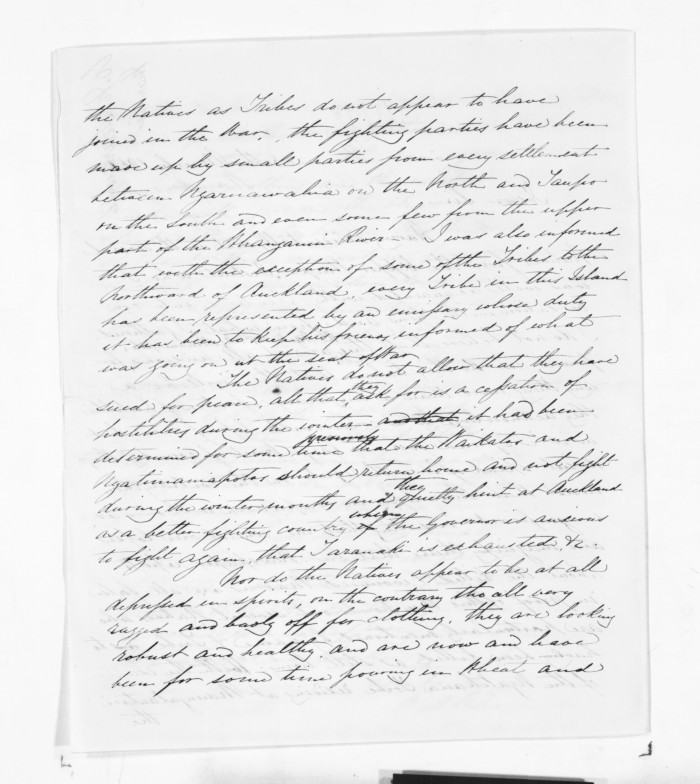 the Natives as Tribes do not appear to have
joined in the War, the fighting parties have been
made up by small parties from every settlement
between Ngaruawahia on the North and Taupo
on the South and even some few from the upper
part of the Whanganui River - I was also informed
that with the exception of some of the Tribes to the
Northward of Auckland, every Tribe in this Island
has been represented by an emissary whose duty
it has been to keep his friends informed of what
was going on at the seat of War
The Natives do not allow that they have
sued for peace, all that they ask for is a cessation of
hostilities during the winter and that it had been
previously
determined for some time that the Waikatos and
Ngatimaniapotos should return home and not fight
during the winter months and they quietly hint at Auckland
as a better fighting country when the Governor is anxious
to fight again, that Taranaki is exhausted &c.
Nor do the Natives appear to be at all
depressed in spirits, on the contrary tho all very
ragged and badly off for clothing, they are looking
robust and healthy and are now and have
been for some time pouring in Wheat and